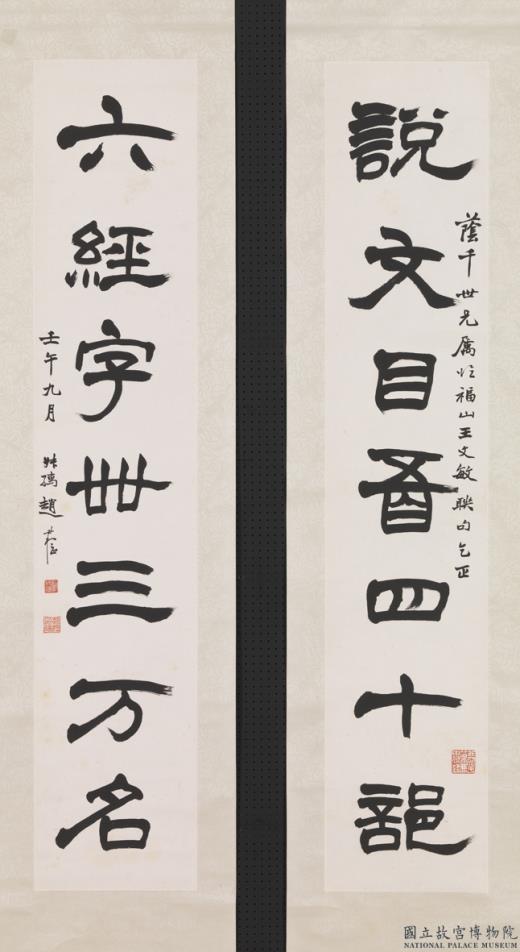 說文目四十部
蔭千世兄屬福山王文敏聯句乞正
六經字卅三万名
壬午九月 叔孺趙時棡
國立故宮博物院
NATIONAL PALACE MUSEUM